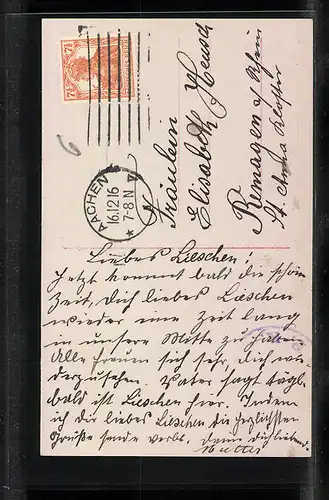 7½
7½
AACHEN
16.12.16
7-8 N
6
Fräulein
Elisabeth Heusch
Remagen a/ Rhein
St. Anna Kloster
Liebes Lieschen!
Jetzt kommt bald die schöne
Zeit, Dich liebes Lieschen
wieder eine Zeit lang
in unsere Mitte zu haben.
Alle freuen sich sehr, dich wie-
derzusehen. Vater sagt tägl.
bald ist Lieschen hier. Indem
ich dir liebes Lieschen die herzlichsten
Grüße sende verbl. deine dichliebend.
Mutter